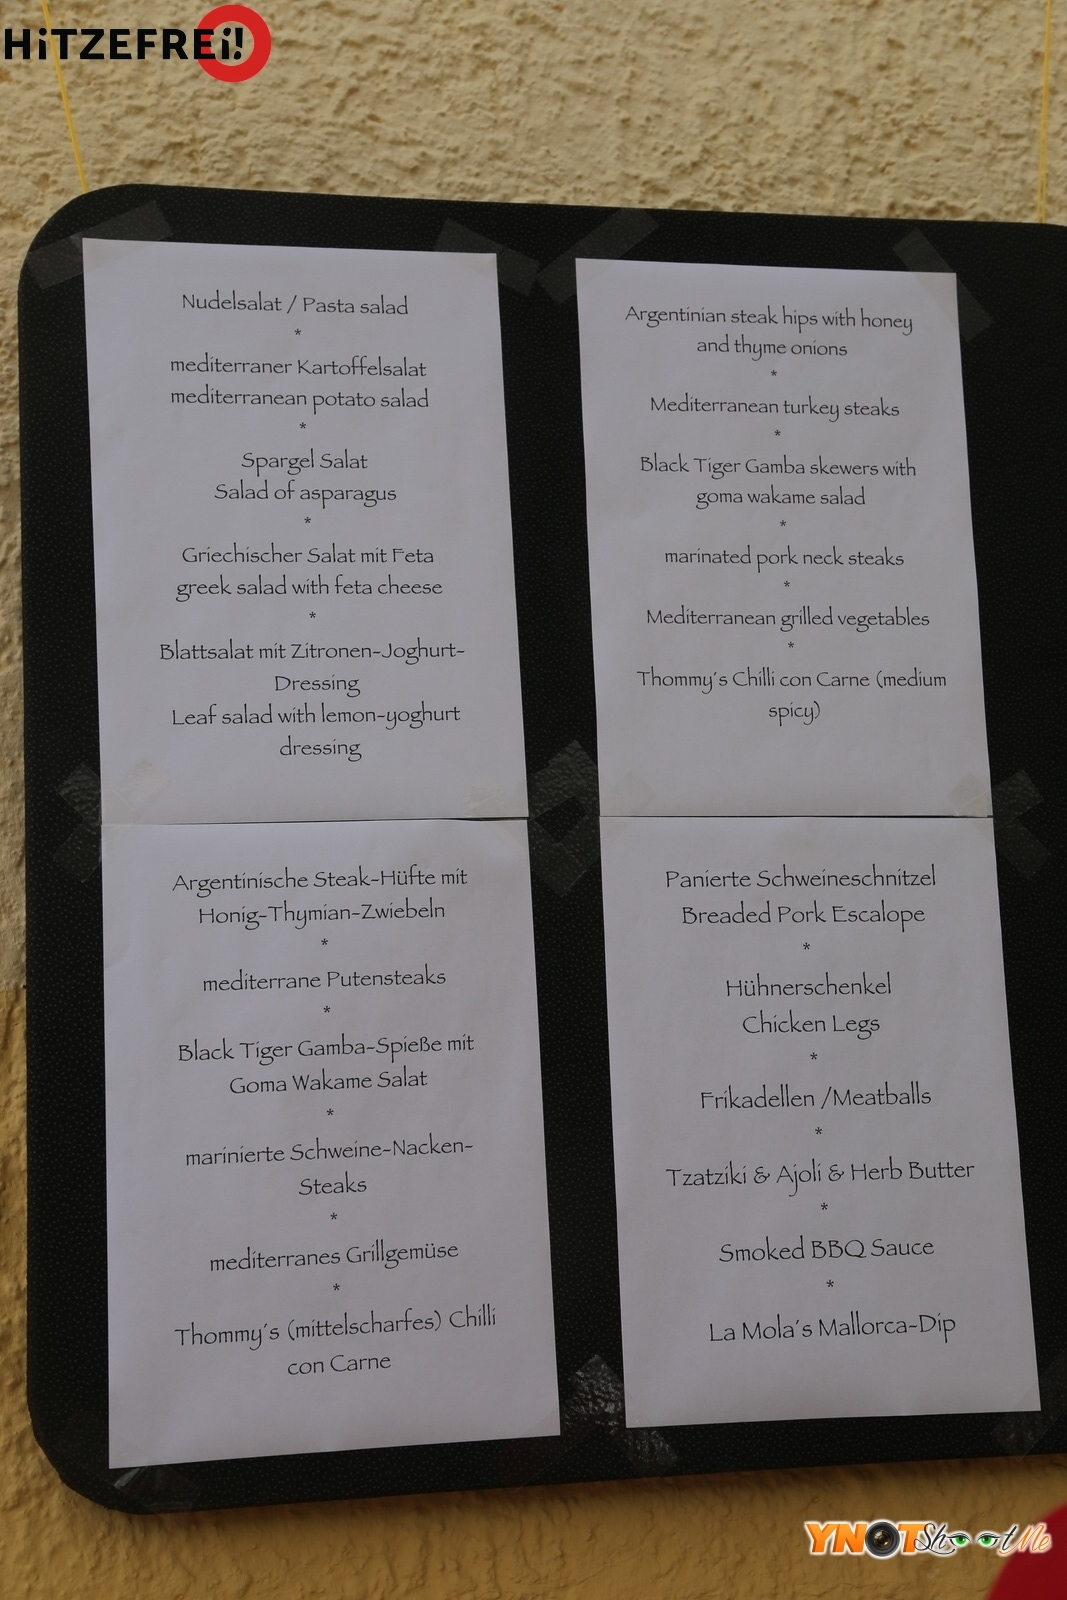 HiTZEFREi!
Nudelsalat / Pasta salad
*
mediterraner Kartoffelsalat
mediterranean potato salad
*
Spargel Salat
Salad of asparagus
*
Griechischer Salat mit Feta
greek salad with feta cheese
*
Blattsalat mit Zitronen-Joghurt-
Dressing
Leaf salad with lemon-yoghurt
dressing
Argentinian steak hips with honey
and thyme onions
*
Mediterranean turkey steaks
*
Black Tiger Gamba skewers with
goma wakame salad
*
marinated pork neck steaks
*
Mediterranean grilled vegetables
*
Thommy´s Chilli con Carne (medium
spicy)
Argentinische Steak-Hüfte mit
Honig-Thymian-Zwiebeln
*
mediterrane Putensteaks
*
Black Tiger Gamba-Spieße mit
Goma Wakame Salat
*
marinierte Schweine-Nacken-
Steaks
*
mediterranes Grillgemüse
*
Thommy´s (mittelscharfes) Chilli
con Carne
Panierte Schweineschnitzel
Breaded Pork Escalope
*
Hühnerschenkel
Chicken Legs
*
Frikadellen /Meatballs
*
Tzatziki & Ajoli & Herb Butter
*
Smoked BBQ Sauce
*
La Mola´s Mallorca-Dip
YNOTShootMe